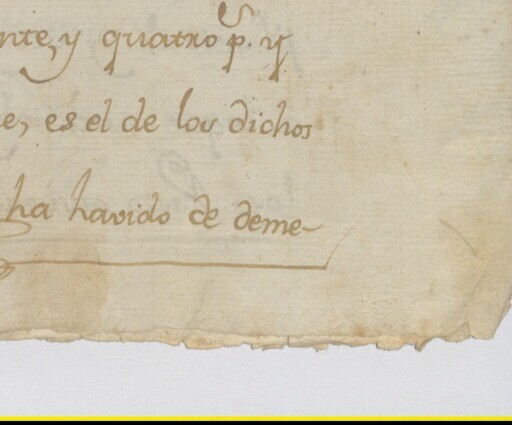 nte, y quatro p. y
e, es el de los dichos
ha havido de deme-